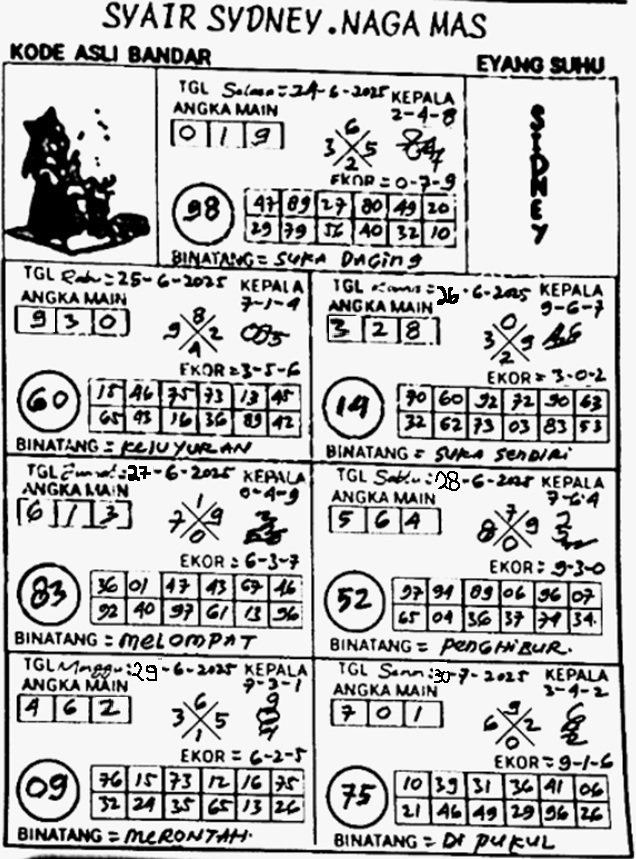 SYAIR SYDNEY.NAGA MAS
KODE ASLI BANDAR
EYANG SUHU
SIDNEY
TGL Selasa=24-6-2025 KEPALA
2-4-8
ANGKA MAIN
0 1 9
6
3 5
2
EKOR = 0-7-9
98
47 89 27 80 49 20
29 79 56 40 32 10
BINATANG = SUKA DAGING
TGL Rabu:25-6-2025 KEPALA
7-1-4
ANGKA MAIN
9 3 0
8
9 2
4
EKOR = 3-5-6
60
15 46 75 73 13 45
65 93 16 36 89 42
BINATANG = KELUYURAN
TGL Kamis=26-6-2025 KEPALA
9-6-7
ANGKA MAIN
3 2 8
0
3 9
2
EKOR = 3-0-2
14
90 60 92 72 90 63
32 62 73 03 83 53
BINATANG = SUKA SENDIRI
TGL Jumat:27-6-2025 KEPALA
0-4-9
ANGKA MAIN
6 1 3
1
7 9
0
EKOR = 6-3-7
83
36 01 47 43 67 46
92 40 97 61 13 96
BINATANG = MELOMPAT
TGL Sabtu:28-6-2025 KEPALA
7-6-4
ANGKA MAIN
5 6 4
7
8 9
0
EKOR = 9-3-0
52
97 94 89 06 96 07
65 04 36 37 74 34
BINATANG = PENGHIBUR.
TGL Minggu:29-6-2025 KEPALA
7-3-1
ANGKA MAIN
4 6 2
6
3 5
1
EKOR = 6-2-5
09
76 15 73 12 16 75
32 24 35 65 13 26
BINATANG = MERONTAH.
TGL Senin:30-7-2025 KEPALA
3-4-2
ANGKA MAIN
7 0 1
9
6 2
0
EKOR = 9-1-6
75
10 39 31 36 41 06
21 46 49 29 96 26
BINATANG = DI PUKUL